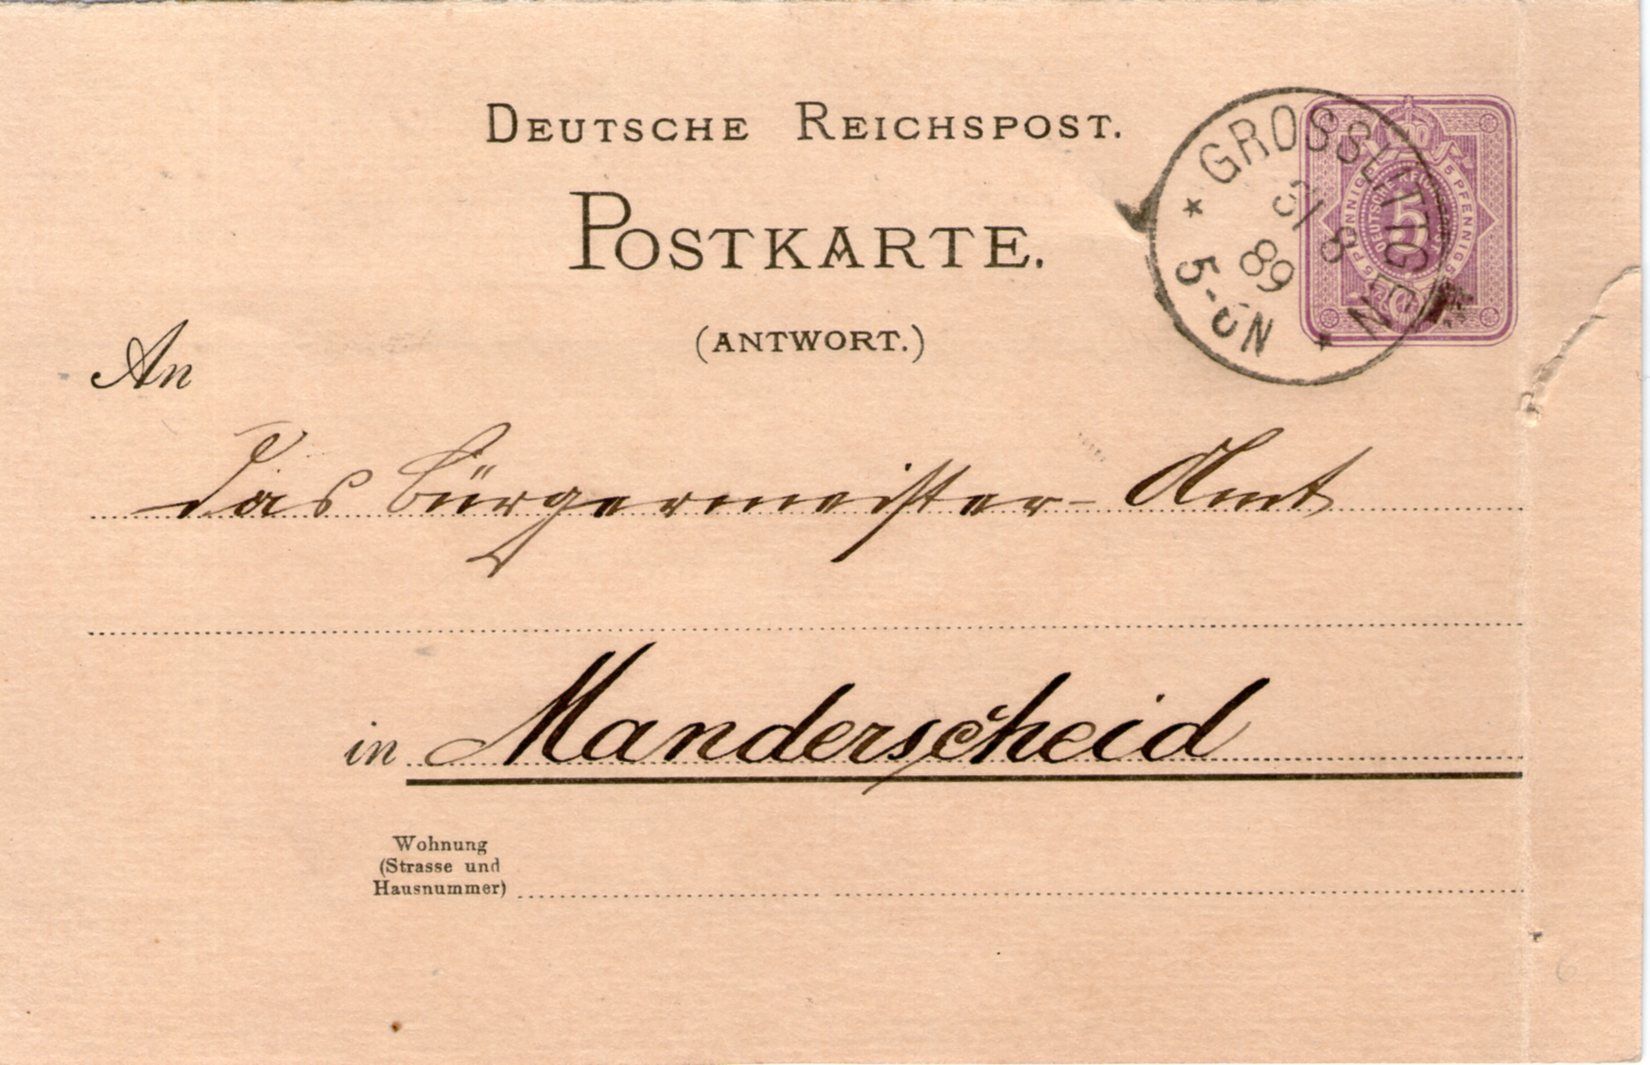 DEUTSCHE REICHSPOST.
POSTKARTE.
(ANTWORT.)
GROSSLITTGEN
31 8
89
5-6N
5 PFENNIG 5 PFENNIG 5
DEUTSCHE REICHSPOST
5
An
das Bürgermeister-Amt
in Manderscheid
Wohnung
(Strasse und
Hausnummer)
6